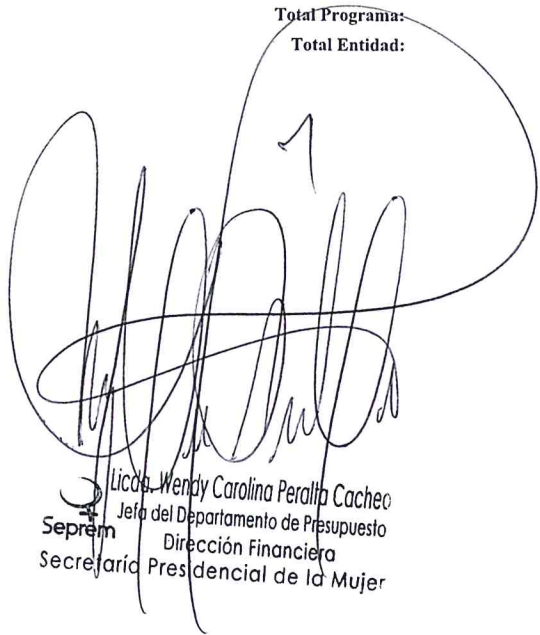 Total Programa:
Total Entidad:
Licda. Wendy Carolina Peralta Cacheo
Jefa del Departamento de Presupuesto
Seprem
Dirección Financiera
Secretaría Presidencial de la Mujer